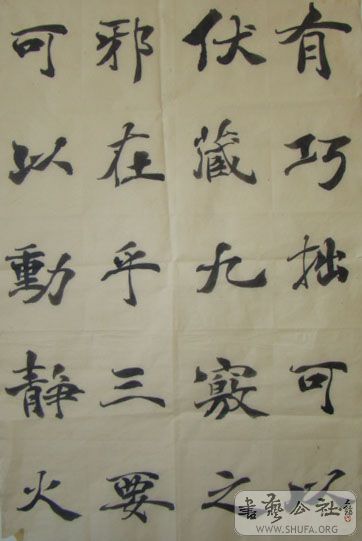 有巧拙可以
伏藏九竅之
邪在乎三要
可以動靜火
書藝公社
WWW.SHUFA.ORG